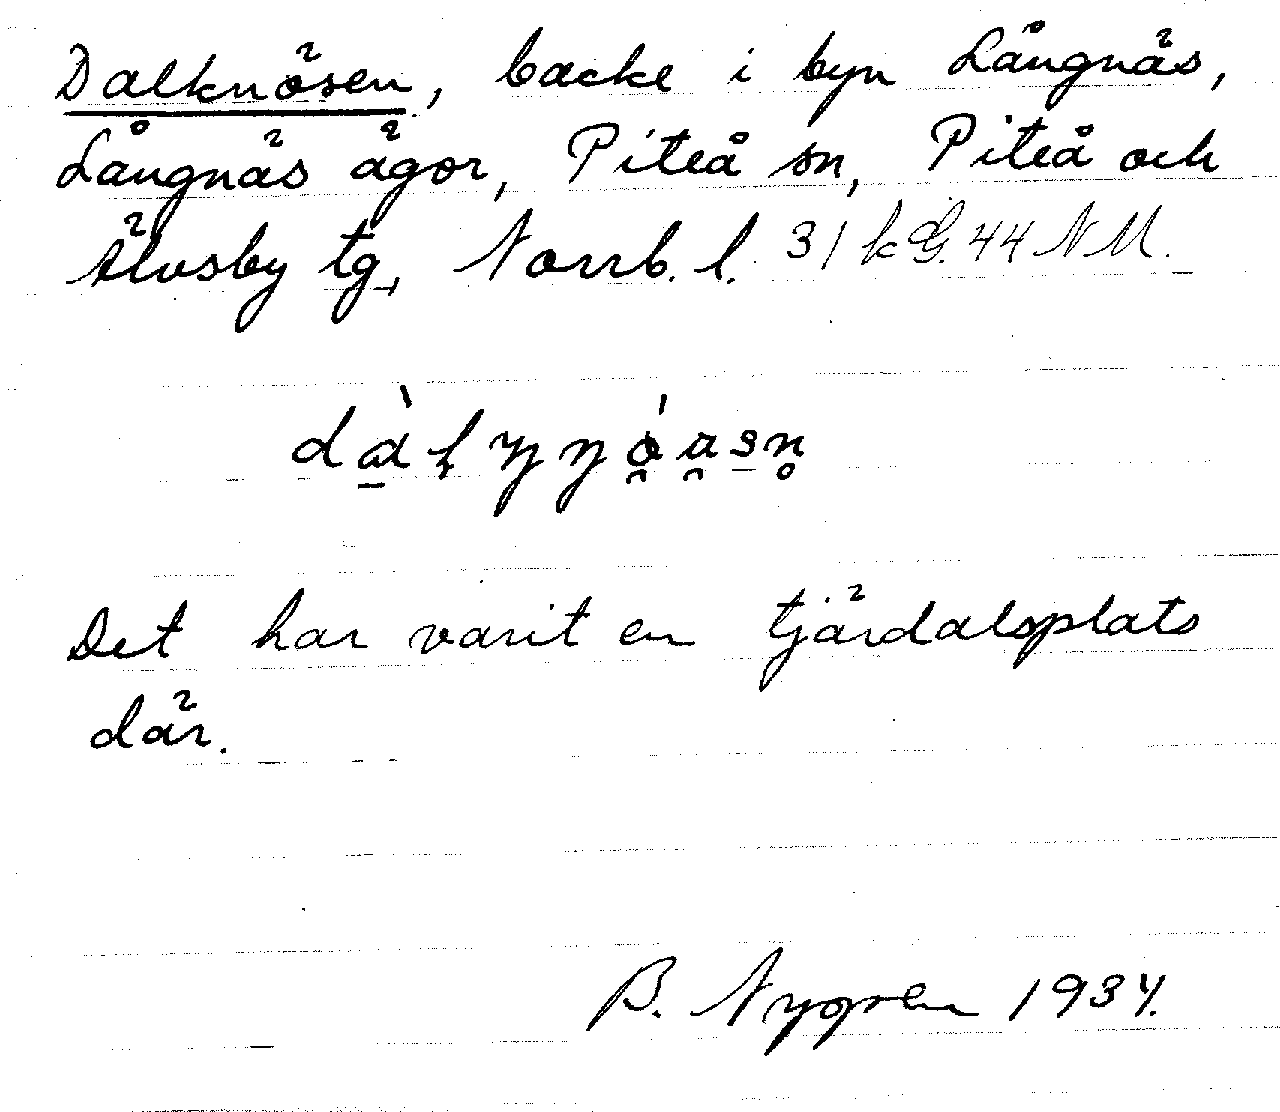 Dalknösen, backe i byn Långnäs,
Långnäs ägor, Piteå sn, Piteå och
Älvsby tg, Norrb. l. 31/k G. 44 NM.
Det har varit en tjärdalsplats
där.
B. Nygren 1934.